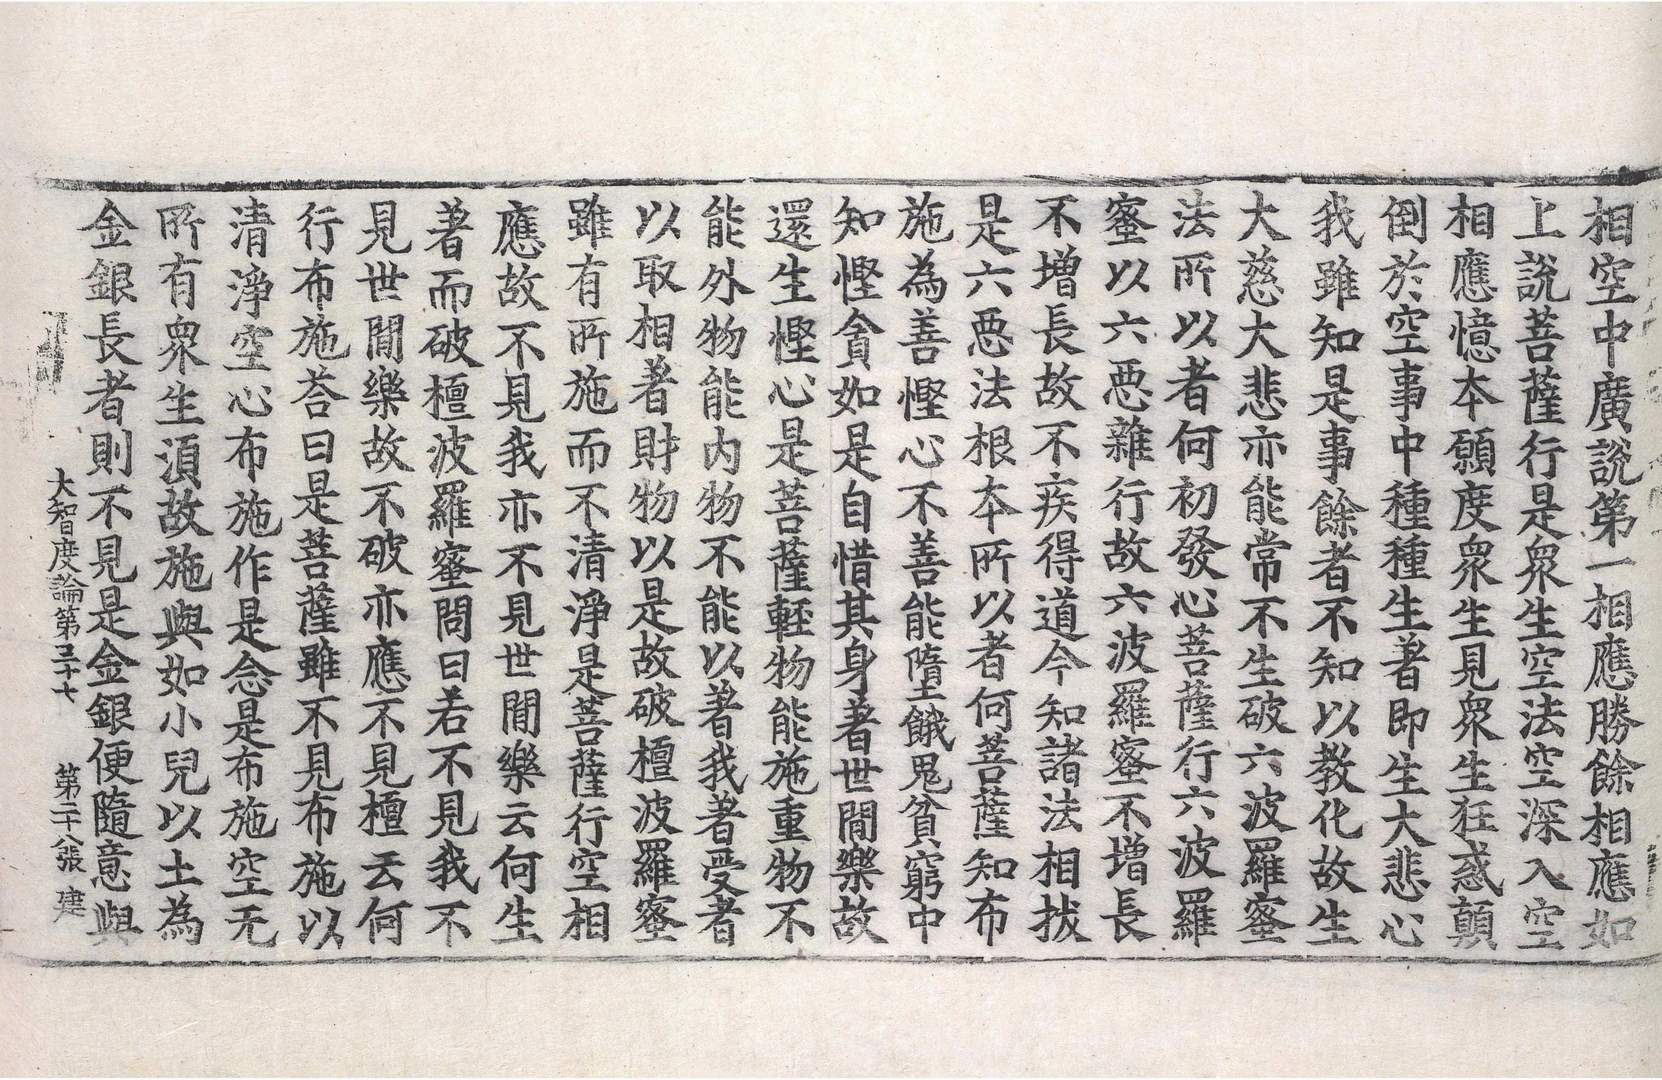 相空中廣說第一相應勝餘相應如
上說菩薩行是衆生空法空深入空
相應憶本願度衆生見衆生狂惑顛
倒於空事中種種生著即生大悲心
我雖知是事餘者不知以教化故生
大慈大悲亦能常不生破六波羅蜜
法所以者何初發心菩薩行六波羅
蜜以六惡雜行故六波羅蜜不增長
不增長故不疾得道今知諸法相拔
是六惡法根本所以者何菩薩知布
施為善慳心不善能墮餓鬼貧窮中
知慳貪如是自惜其身著世間樂故
還生慳心是菩薩輕物能施重物不
能外物能內物不能以著我著受者
以取相著財物以是故破檀波羅蜜
雖有所施而不清淨是菩薩行空相
應故不見我亦不見世間樂云何生
著而破檀波羅蜜問曰若不見我不
見世間樂故不破亦應不見檀云何
行布施荅曰是菩薩雖不見布施以
清淨空心布施作是念是布施空无
所有衆生湏故施與如小兒以土為
金銀長者則不見是金銀便隨意與
大智度論第三十七 第二十八張 建